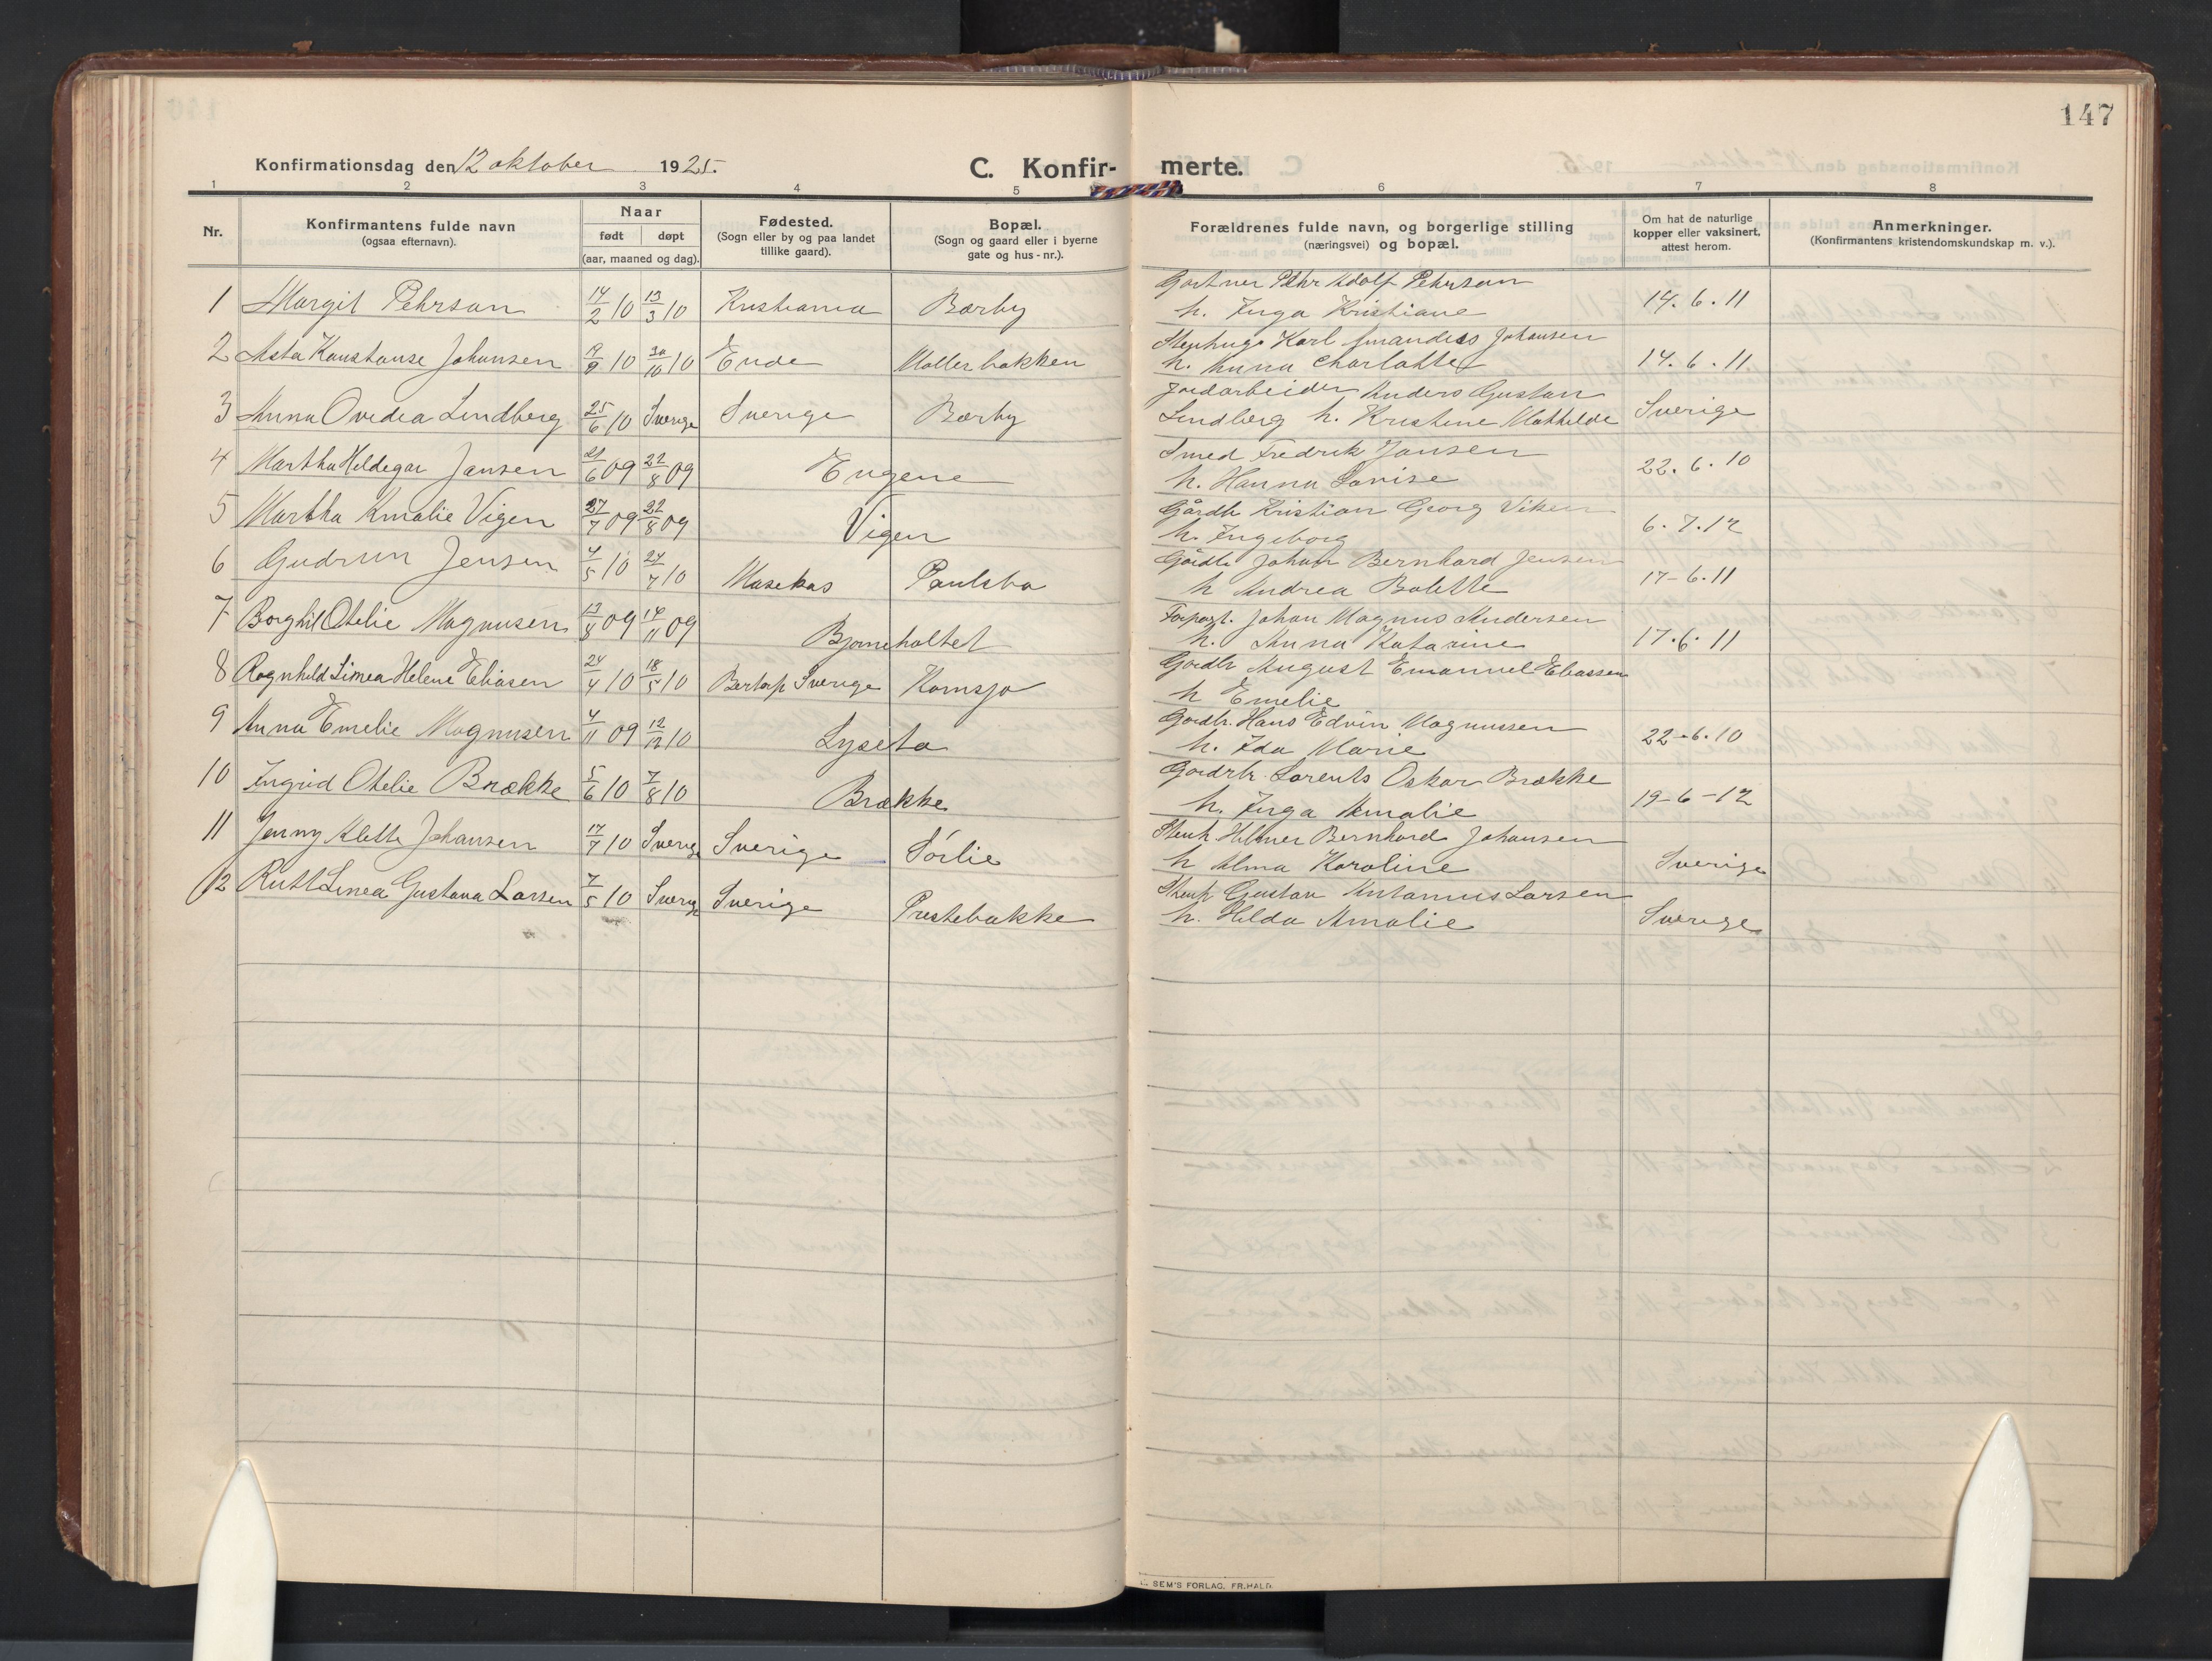 147
Konfirmationsdag den 12 oktober 1925.
C. Konfir- merte.
1 2 3 4 5 6 7 8
Nr.
Konfirmantens fulde navn
(ogsaa efternavn).
Naar
født døpt
(aar, maaned og dag).
Fødested.
(Sogn eller by og paa landet
tillike gaard).
Bopæl.
(Sogn og gaard eller i byerne
gate og hus-nr.).
Forældrenes fulde navn, og borgerlige stilling
(næringsvei) og bopæl.
Om hat de naturlige
kopper eller vaksinert,
attest herom.
Anmerkninger.
(Konfirmantens kristendomskundskap m. v.).
1 Margit Pehrson 14/2 10 13/3 10 Kristiania Bærby Gartner Pehr Adolf Pehrson 14.6.11
h. Inga Kristiane
2 Asta Konstanse Johansen 19/9 10 30/10 10 Ende Møllerbakken Stenhugr Karl Johansen 14.6.11
h. Anna Charlotte
3 Anna Ovedia Lindberg 25/6 10 Sverige Sverige Bærby Jordarbeider Anders Gustav Sverige
Lindberg h. Kristine Mathilde
4 Martha Hildegar Jansen 21/6 09 22/8 09 Eugene Smed Fredrik Jansen 22.6.10
h. Hanna Lovise
5 Martha Amalie Vigen 27/7 09 22/8 09 Vigen Gårdb Kristian Georg Viken 6.7.12
h. Ingeborg
6 Gudrun Jensen 4/5 10 24/7 10 Masekas Paulsbo Gårdb Johan Bernhard Jensen 17-6.11
h Andrea Bolette
7 Borghil Otelie Magnusen 13/8 09 14/11 09 Bjørneholtet Forpagt. Johan Magnus Andersen 17.6.11
h. Anna Katarine
8 Ragnhild Linea Helene Eliasen 24/4 10 18/5 10 Sverige Kornsjø Gårdbr August Emanuel Eliassen
h Emelie
9 Anna Emelie Magnusen 4/11 09 12/12 10 Lyseto Gårdbr. Hans Edvin Magnussen 22-6.10
h. Ida Marie
10 Ingrid Otelie Brække 5/6 10 7/8 10 Brække Gårdbr. Lorents Oskar Brække 19-6-12
h. Inga Amalie
11 Jenny Alette Johansen 17/7 10 Sverig Sverige Sørlie Stenh. Hilmer Bernhard Johansen Sverige
h Alma Karoline
12 Ruth Linea Gustava Larsen 7/5 10 Sverig Sverige Prestebakke Stenh Gustav Antonius Larsen Sverige
h. Hilda Amalie
SEM'S FORLAG, FR.HALD